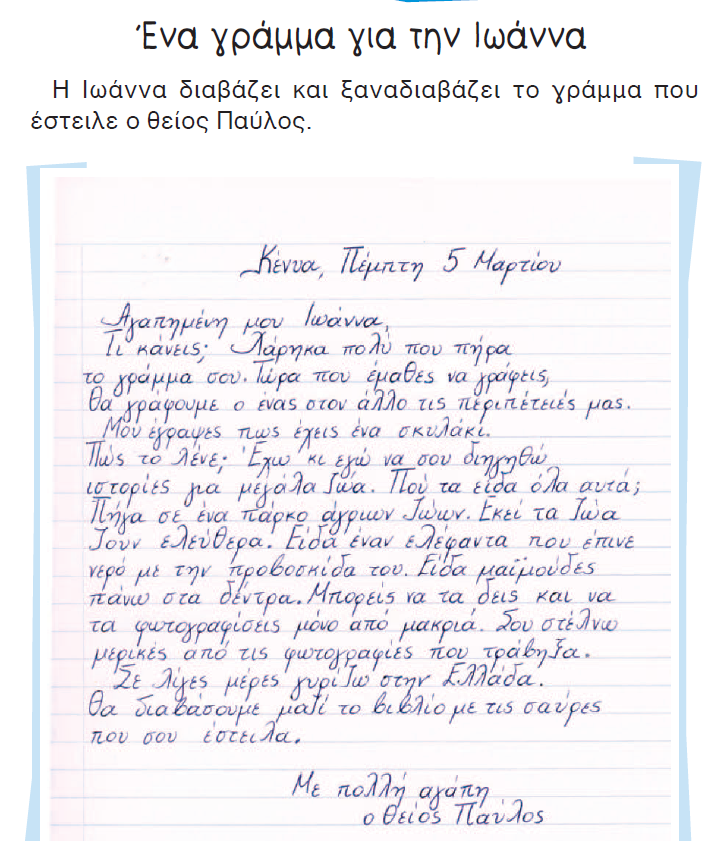 Ένα γράμμα για την Ιωάννα
Η Ιωάννα διαβάζει και ξαναδιαβάζει το γράμμα που
έστειλε ο θείος Παύλος.
Κένυα, Πέμπτη 5 Μαρτίου
Αγαπημένη μου Ιωάννα,
Τι κάνεις; Χάρηκα πολύ που πήρα
το γράμμα σου. Τώρα που έμαθες να γράφεις,
θα γράφουμε ο ένας στον άλλο τις περιπέτειές μας.
Μου έγραψες πως έχεις ένα σκυλάκι.
Πώς το λένε; Έχω κι εγώ να σου διηγηθώ
ιστορίες για μεγάλα ζώα. Πού τα είδα όλα αυτά;
Πήγα σε ένα πάρκο άγριων ζώων. Εκεί τα ζώα
ζουν ελεύθερα. Είδα έναν ελέφαντα που έπινε
νερό με την προβοσκίδα του. Είδα μαϊμούδες
πάνω στα δέντρα. Μπορείς να τα δεις και να
τα φωτογραφίσεις μόνο από μακριά. Σου στέλνω
μερικές από τις φωτογραφίες που τράβηξα.
Σε λίγες μέρες γυρίζω στην Ελλάδα.
Θα διαβάσουμε μαζί το βιβλίο με τις σαύρες
που σου έστειλα.
Με πολλή αγάπη
ο θείος Παύλος